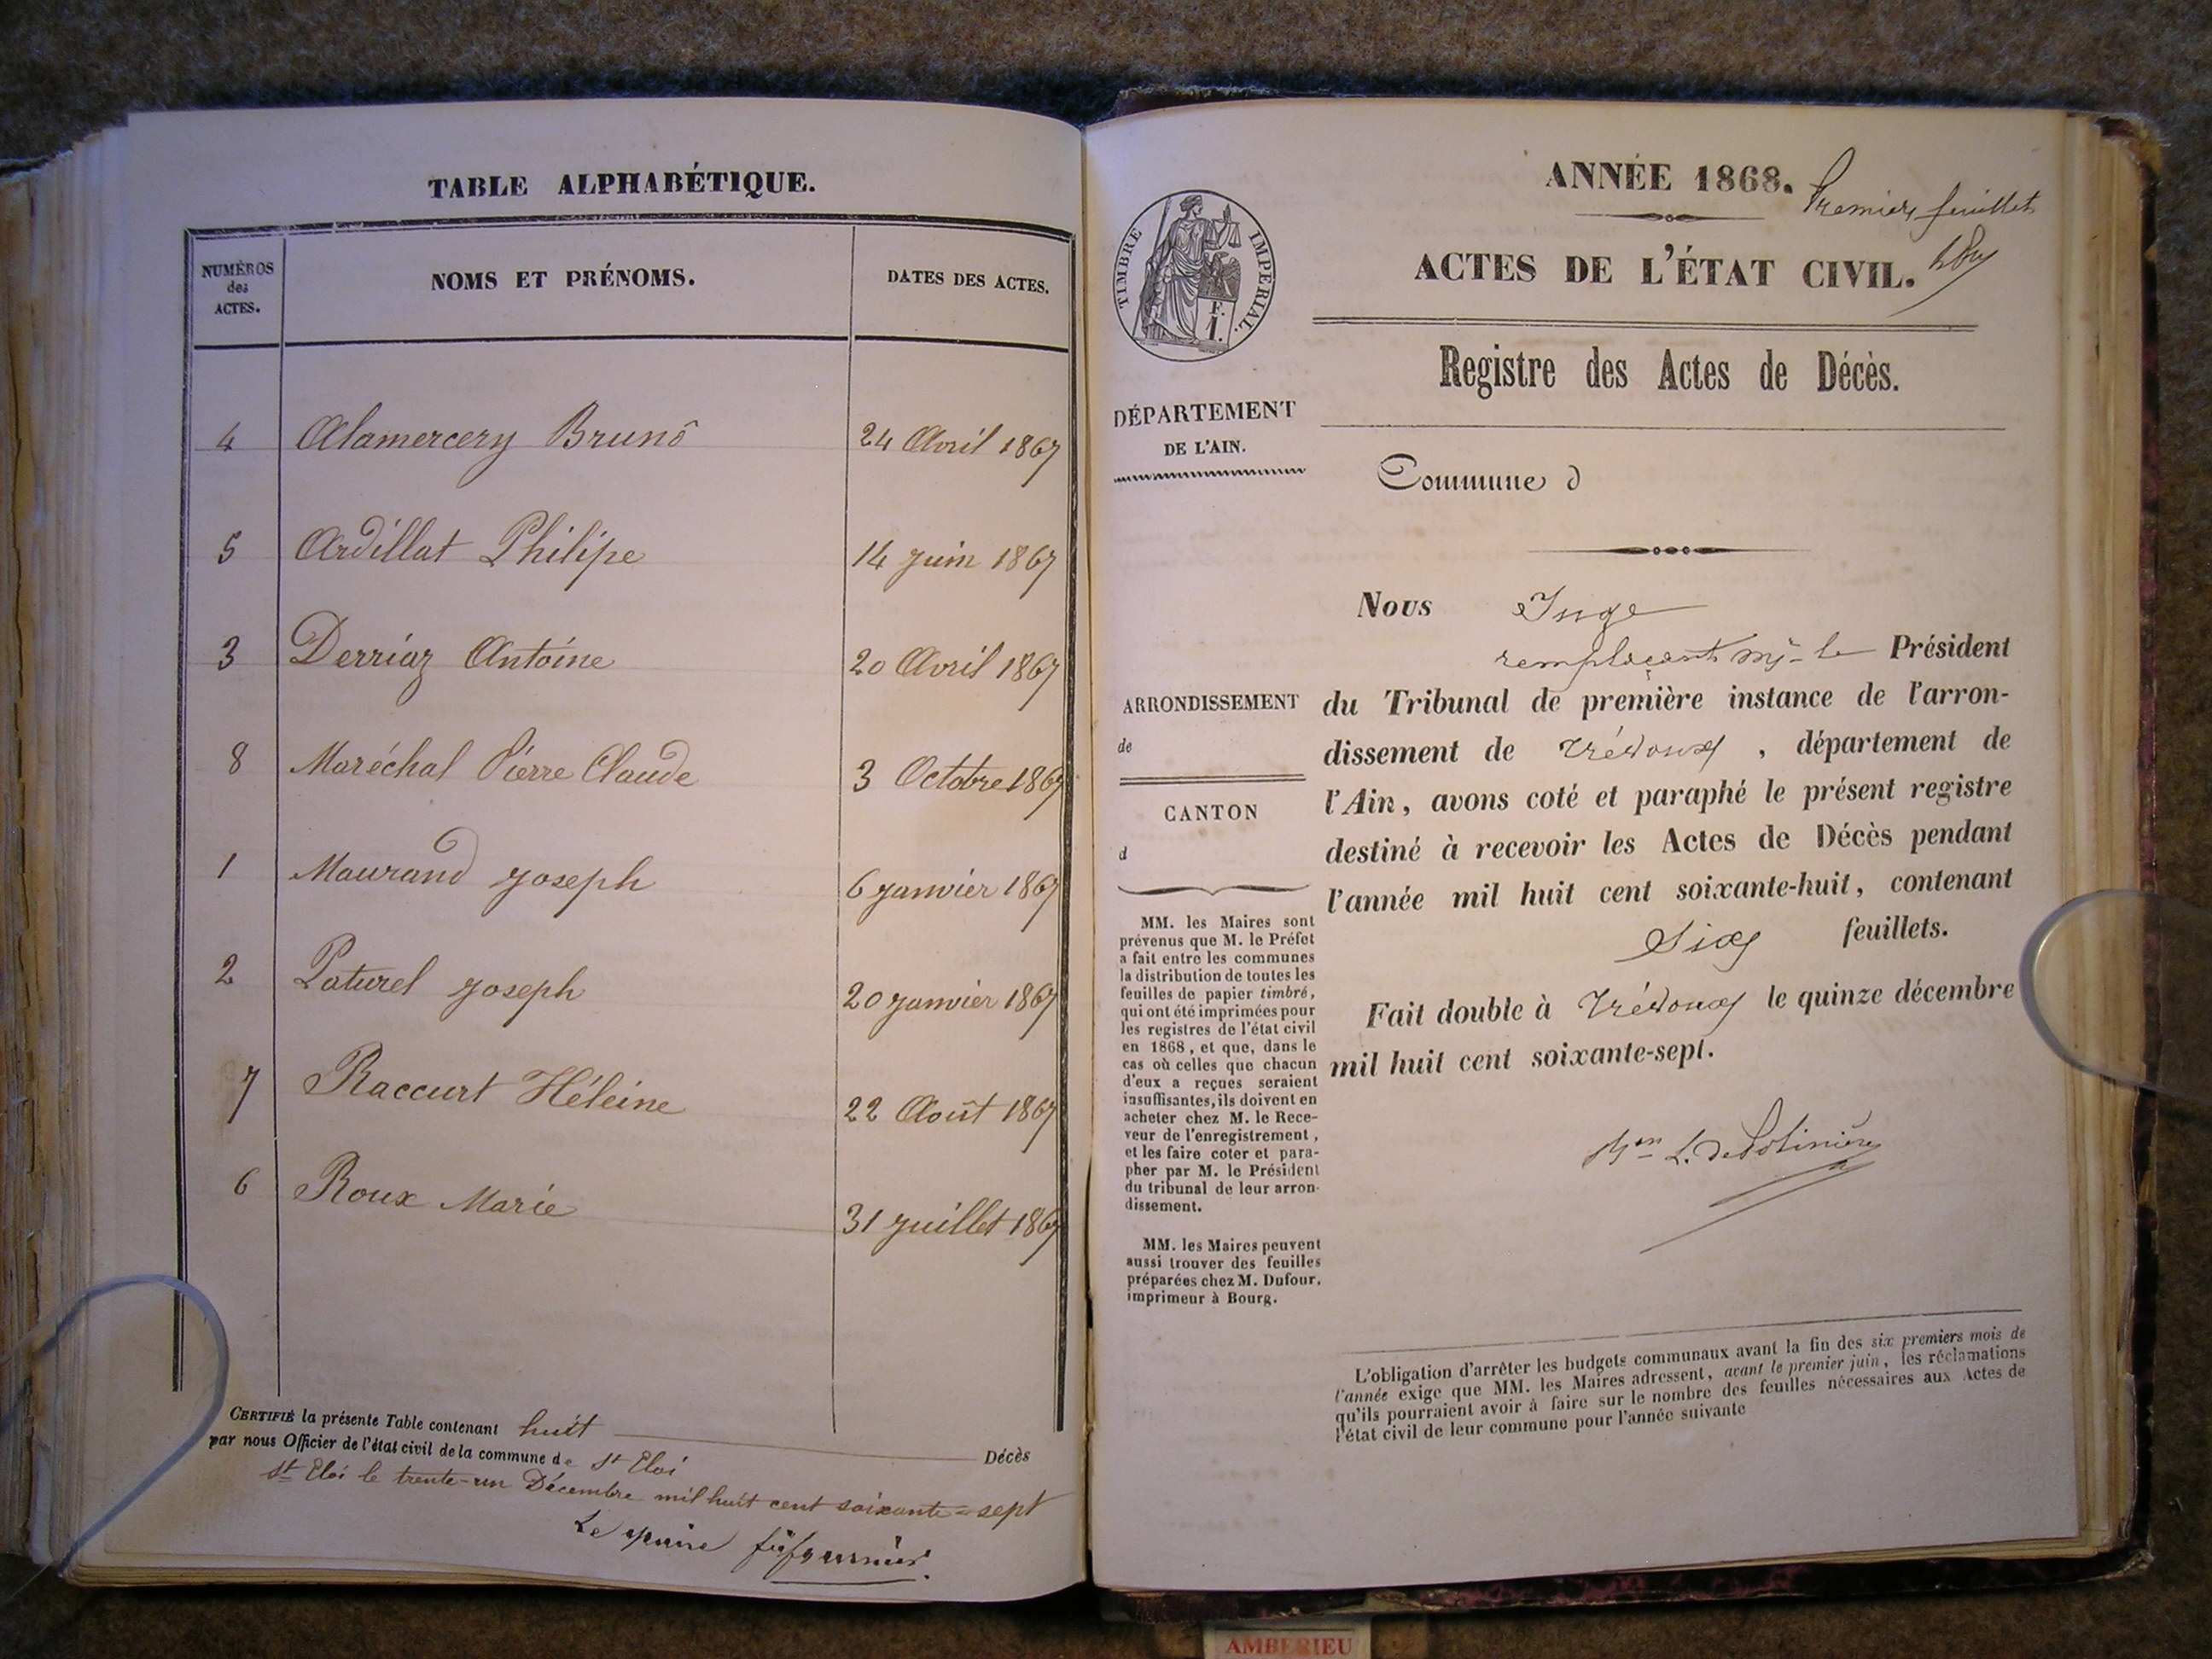 TABLE ALPHABÉTIQUE.
NUMÉROS des ACTES.
NOMS ET PRÉNOMS.
DATES DES ACTES.
4 Alamercery Bruno 24 Avril 1867
5 Ardillat Philipe 14 juin 1867
3 Derriaz Antoine 20 Avril 1867
8 Maréchal Pierre Claude 3 Octobre 1867
1 Maurand joseph 6 janvier 1867
2 Paturel joseph 20 janvier 1867
7 Raccurt Héléine 22 Août 1867
6 Roux Marie 31 juillet 1867
CERTIFIÉ la présente Table contenant huit Décès
par nous Officier de l'état civil de la commune de St Eloi
St Eloi le trente-un Décembre mil huit cent soixante=sept
Le maire
ANNÉE 1868.
Premier feuillet
ACTES DE L'ÉTAT CIVIL.
TIMBRE IMPERIAL.
F.
I.
Registre des Actes de Décès.
DÉPARTEMENT
DE L'AIN.
Commune d
Nous Juge
remplaçant Mr le Président
ARRONDISSEMENT
de
CANTON
d
du Tribunal de première instance de l'arron-
dissement de Trévoux, département de
l'Ain, avons coté et paraphé le présent registre
destiné à recevoir les Actes de Décès pendant
l'année mil huit cent soixante-huit, contenant
Six feuillets.
Fait double à Trévoux le quinze décembre
mil huit cent soixante-sept.
MM. les Maires sont
prévenus que M. le Préfet
a fait entre les communes
la distribution de toutes les
feuilles de papier timbré,
qui ont été imprimées pour
les registres de l'état civil
en 1868, et que, dans le
cas où celles que chacun
d'eux a reçues seraient
insuffisantes, ils doivent en
acheter chez M. le Rece-
veur de l'enregistrement,
et les faire coter et para-
pher par M. le Président
du tribunal de leur arron-
dissement.
MM. les Maires peuvent
aussi trouver des feuilles
préparées chez M. Dufour,
imprimeur à Bourg.
L'obligation d'arrêter les budgets communaux avant la fin des six premiers mois de
l'année exige que MM. les Maires adressent, avant le premier juin, les réclamations
qu'ils pourraient avoir à faire sur le nombre des feuilles nécessaires aux Actes de
l'état civil de leur commune pour l'année suivante
AMBERIEU